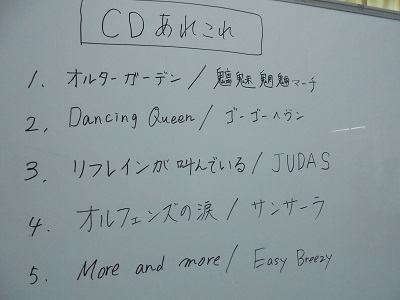 CDあれこれ
1. オルターガーデン / 魑魅魍魎マーチ
2. Dancing Queen / ゴーゴーヘヴン
3. リフレインが叫んでいる / JUDAS
4. オルフェンズの涙 / サンサーラ
5. More and more / Easy Breezy